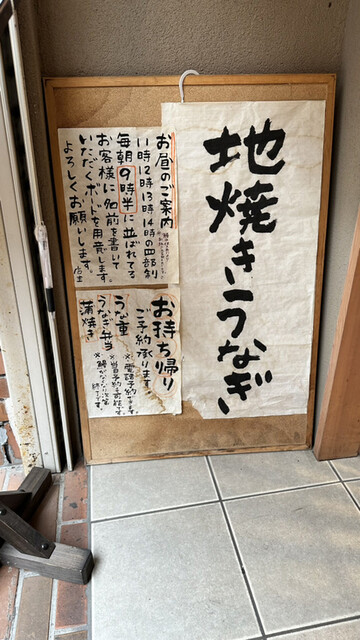 地焼きうなぎ
お昼のご案内
11時12時13時14時の四部制
毎朝9時半に並ばれてる
お客様に名前を書いて
いただくボードを用意します。
よろしくお願いします。
店主
お持ち帰り
ご予約承ります。
うな重
うなぎ弁当
蒲焼き
※電話予約できます。
※当日予約も可能です
※鰻がなくなり次第
終了です。